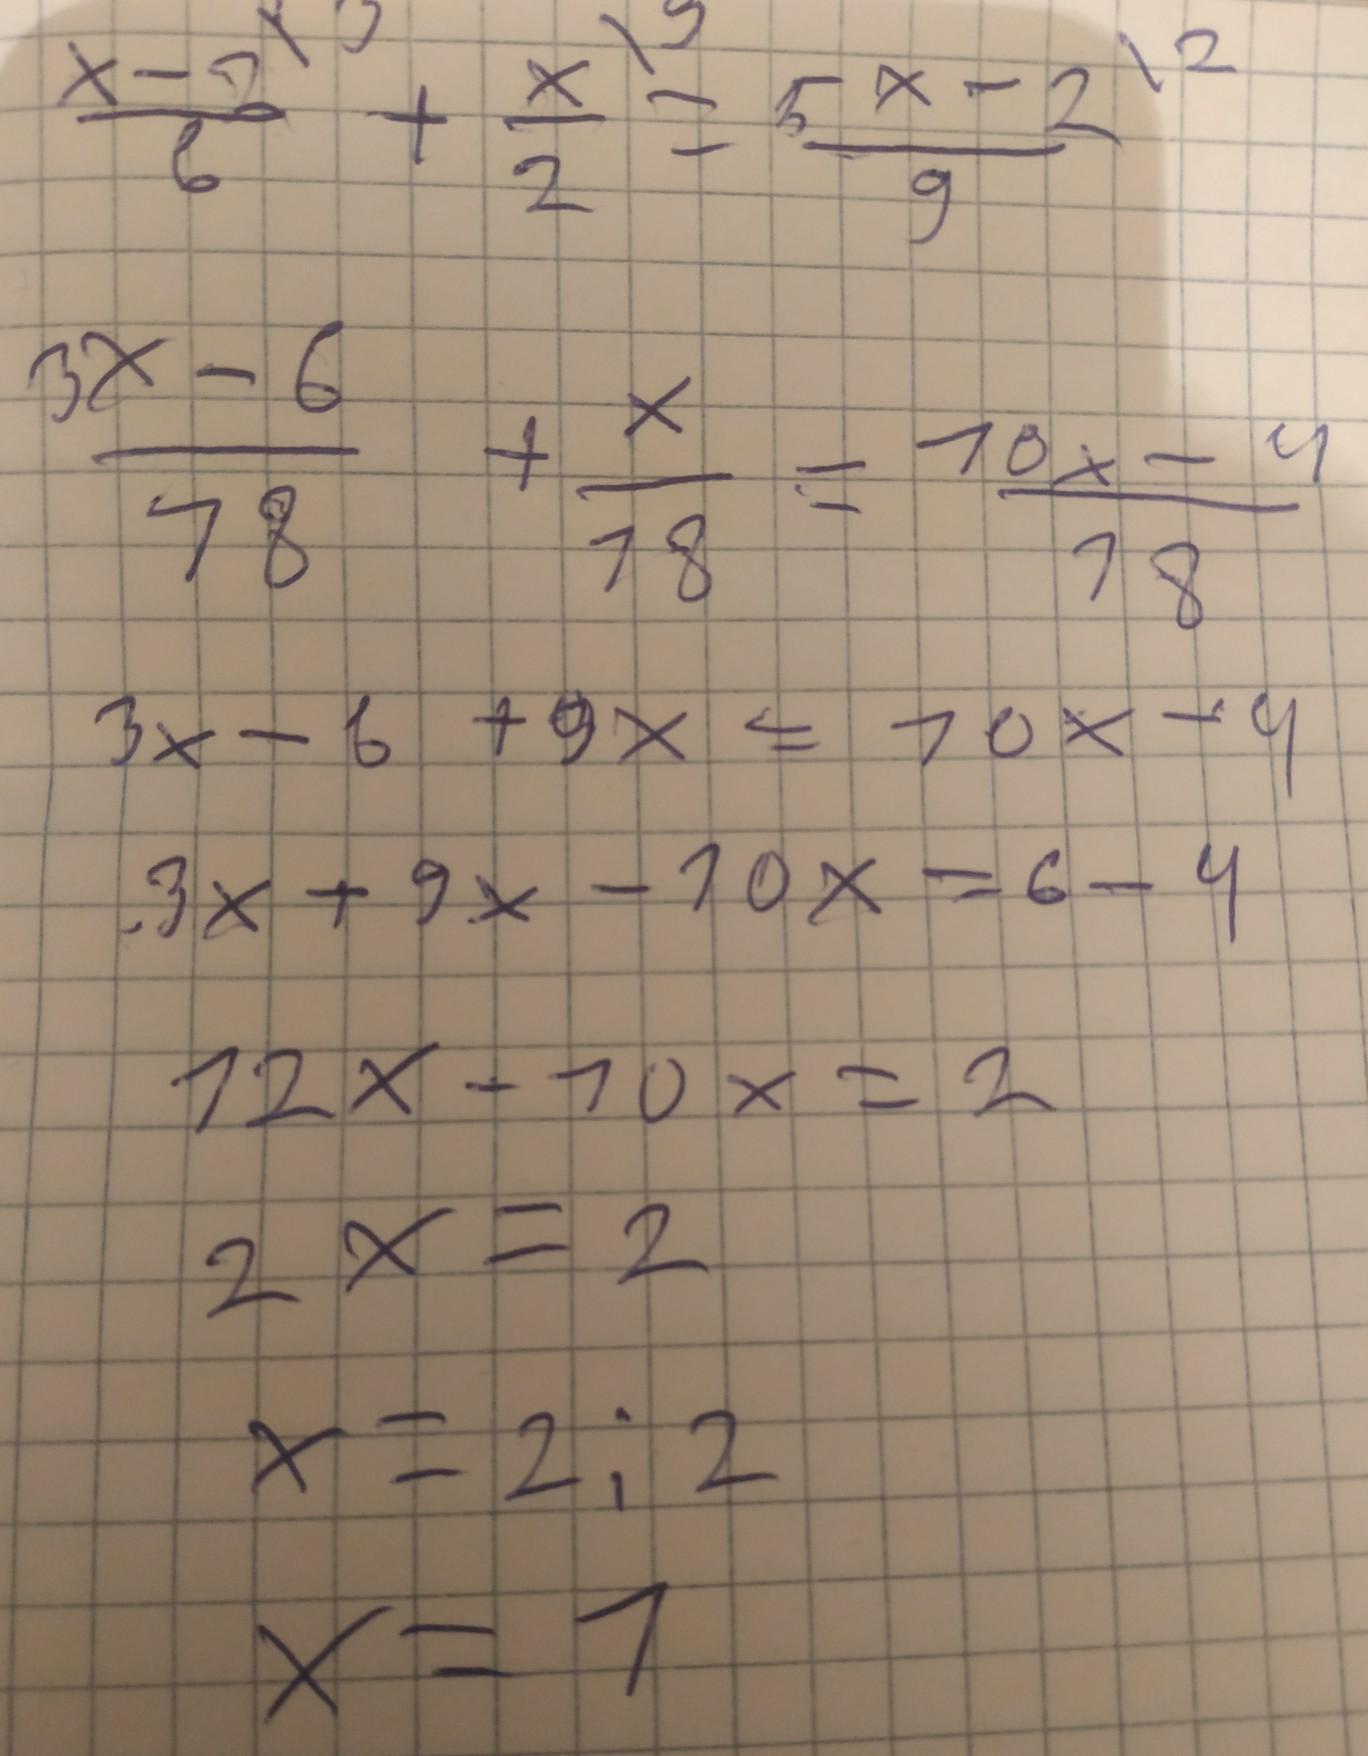 x-2\3/6 + x\9/2 = 5x-2\2/9
3x-6/18 + x/18 = 10x-4/18
3x-6 +9x = 10x-4
3x+9x-10x=6-4
12x-10x=2
2x=2
x=2:2
x=1